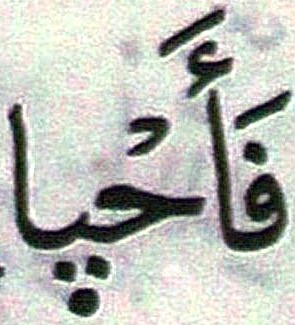 فَأَحْيا